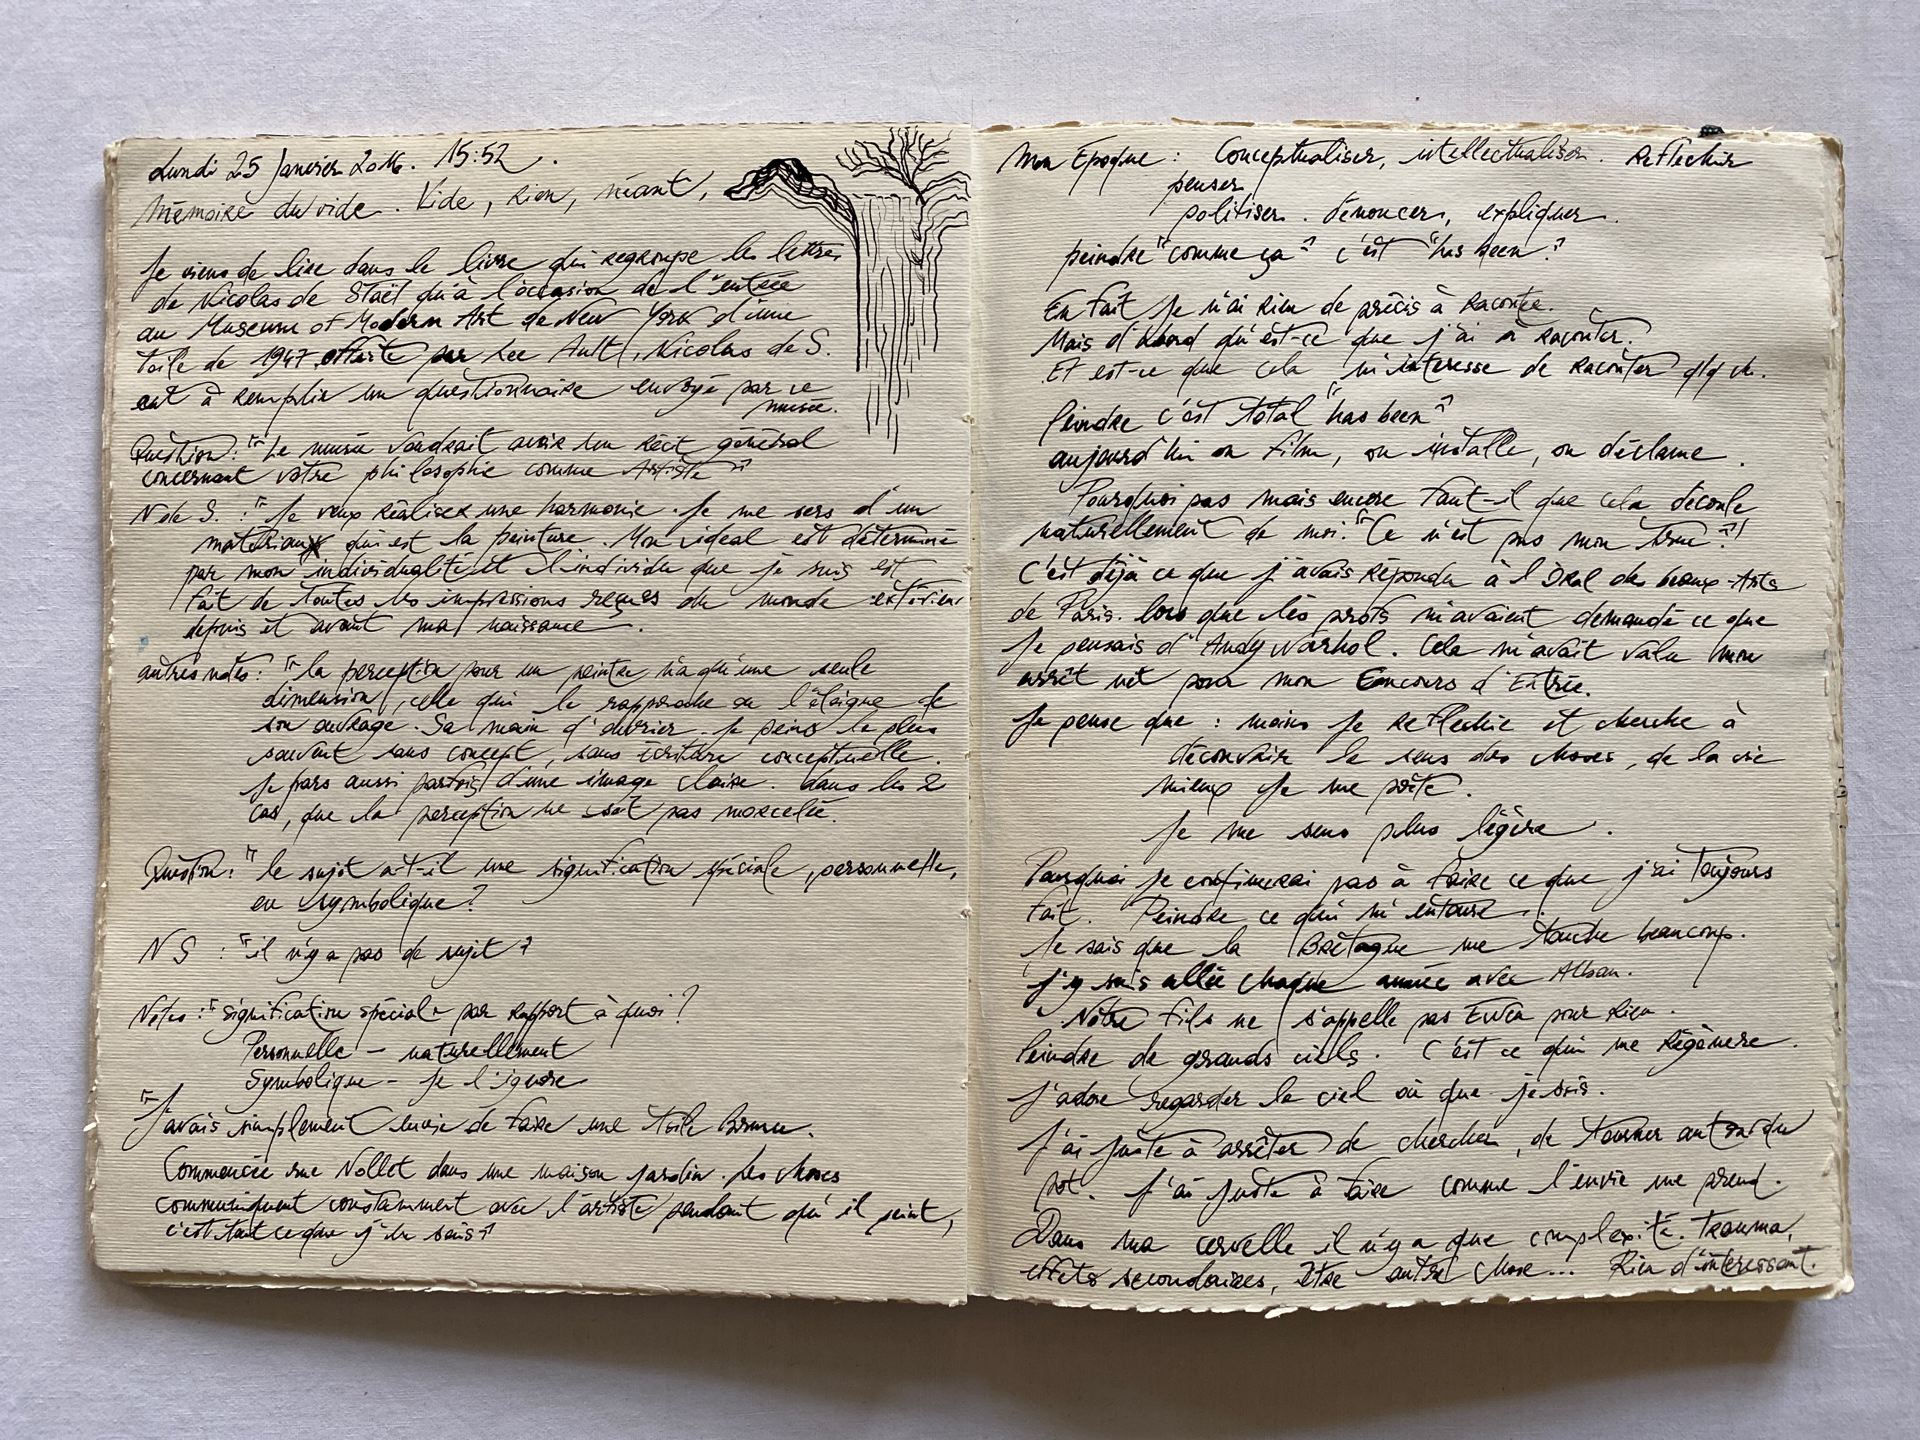 Lundi 25 Janvier 2016. 15:52.
Mémoire du vide. Vide, rien, néant,
Je viens de lire dans le livre qui regroupe les lettres
de Nicolas de Staël qu'à l'occasion de l'entrée
au Museum of Modern Art de New York d'une
toile de 1947 offerte par Lee Ault, Nicolas de S.
eut à remplir un questionnaire envoyé par ce
musée.
Question: "Le musée voudrait avoir un récit général
concernant votre philosophie comme Artiste"
N de S. : "Je veux réaliser une harmonie. Je me sers d'un
matériau qui est la peinture. Mon idéal est déterminé
par mon individualité et l'individu que je suis est
fait de toutes les impressions reçues du monde extérieur
depuis et avant ma naissance".
autres notes: "la perception pour un peintre n'a qu'une seule
dimension, celle qui le rapproche ou l'éloigne de
son ouvrage. Sa main d'ouvrier. Je peins le plus
souvent sans concept, sans écriture conceptuelle.
Je pars aussi parfois d'une image claire. Dans les 2
cas, que la perception ne soit pas morcelée.
Question: "le sujet a-t-il une signification spéciale, personnelle,
ou symbolique?
N S : "il n'y a pas de sujet"
Notes: "signification spéciale par rapport à quoi?
Personnelle - naturellement
Symbolique - je l'ignore
"J'avais simplement envie de faire une toile brune.
Commencée rue Nollet dans une maison jardin. Les choses
communiquent constamment avec l'artiste pendant qu'il peint,
c'est tout ce que j'en sais"
Mon Epoque : Conceptualiser, intellectualiser. Réfléchir
penser
politiser. dénoncer, expliquer.
peindre "comme ça" c'est "has been".
En fait je n'ai rien de précis à raconter.
Mais d'abord qu'est-ce que j'ai à raconter.
Et est-ce que cela m'intéresse de raconter qlq ch.
Peindre c'est total "has been"
aujourd'hui on film, on installe, on déclame.
Pourquoi pas mais encore faut-il que cela découle
naturellement de moi. "Ce n'est pas mon truc"!
C'est déjà ce que j'avais répondu à l'Oral des beaux-Arts
de Paris. lors que les profs m'avaient demandé ce que
je pensais d'Andy Warhol. Cela m'avait valu mon
arrêt net pour mon Concours d'Entrée.
Je pense que : moins je réfléchie et cherche à
découvrir le sens des choses, de la vie
mieux je me porte.
Je me sens plus légère.
Pourquoi je continuerai pas à faire ce que j'ai toujours
fait. Peindre ce qui m'entoure.
Je sais que la Bretagne me touche beaucoup.
J'y suis allée chaque année avec Alban.
Nôtre fils ne s'appelle pas Ewen pour rien.
Peindre de grands ciels. C'est ce qui me régénère.
J'adore regarder le ciel où que je sois.
J'ai juste à arrêter de chercher, de tourner autour du
pot. J'ai juste à faire comme l'envie me prend.
Dans ma cervelle il n'y a que complexité. Trauma,
effets secondaires, être autre chose... Rien d'intéressant.